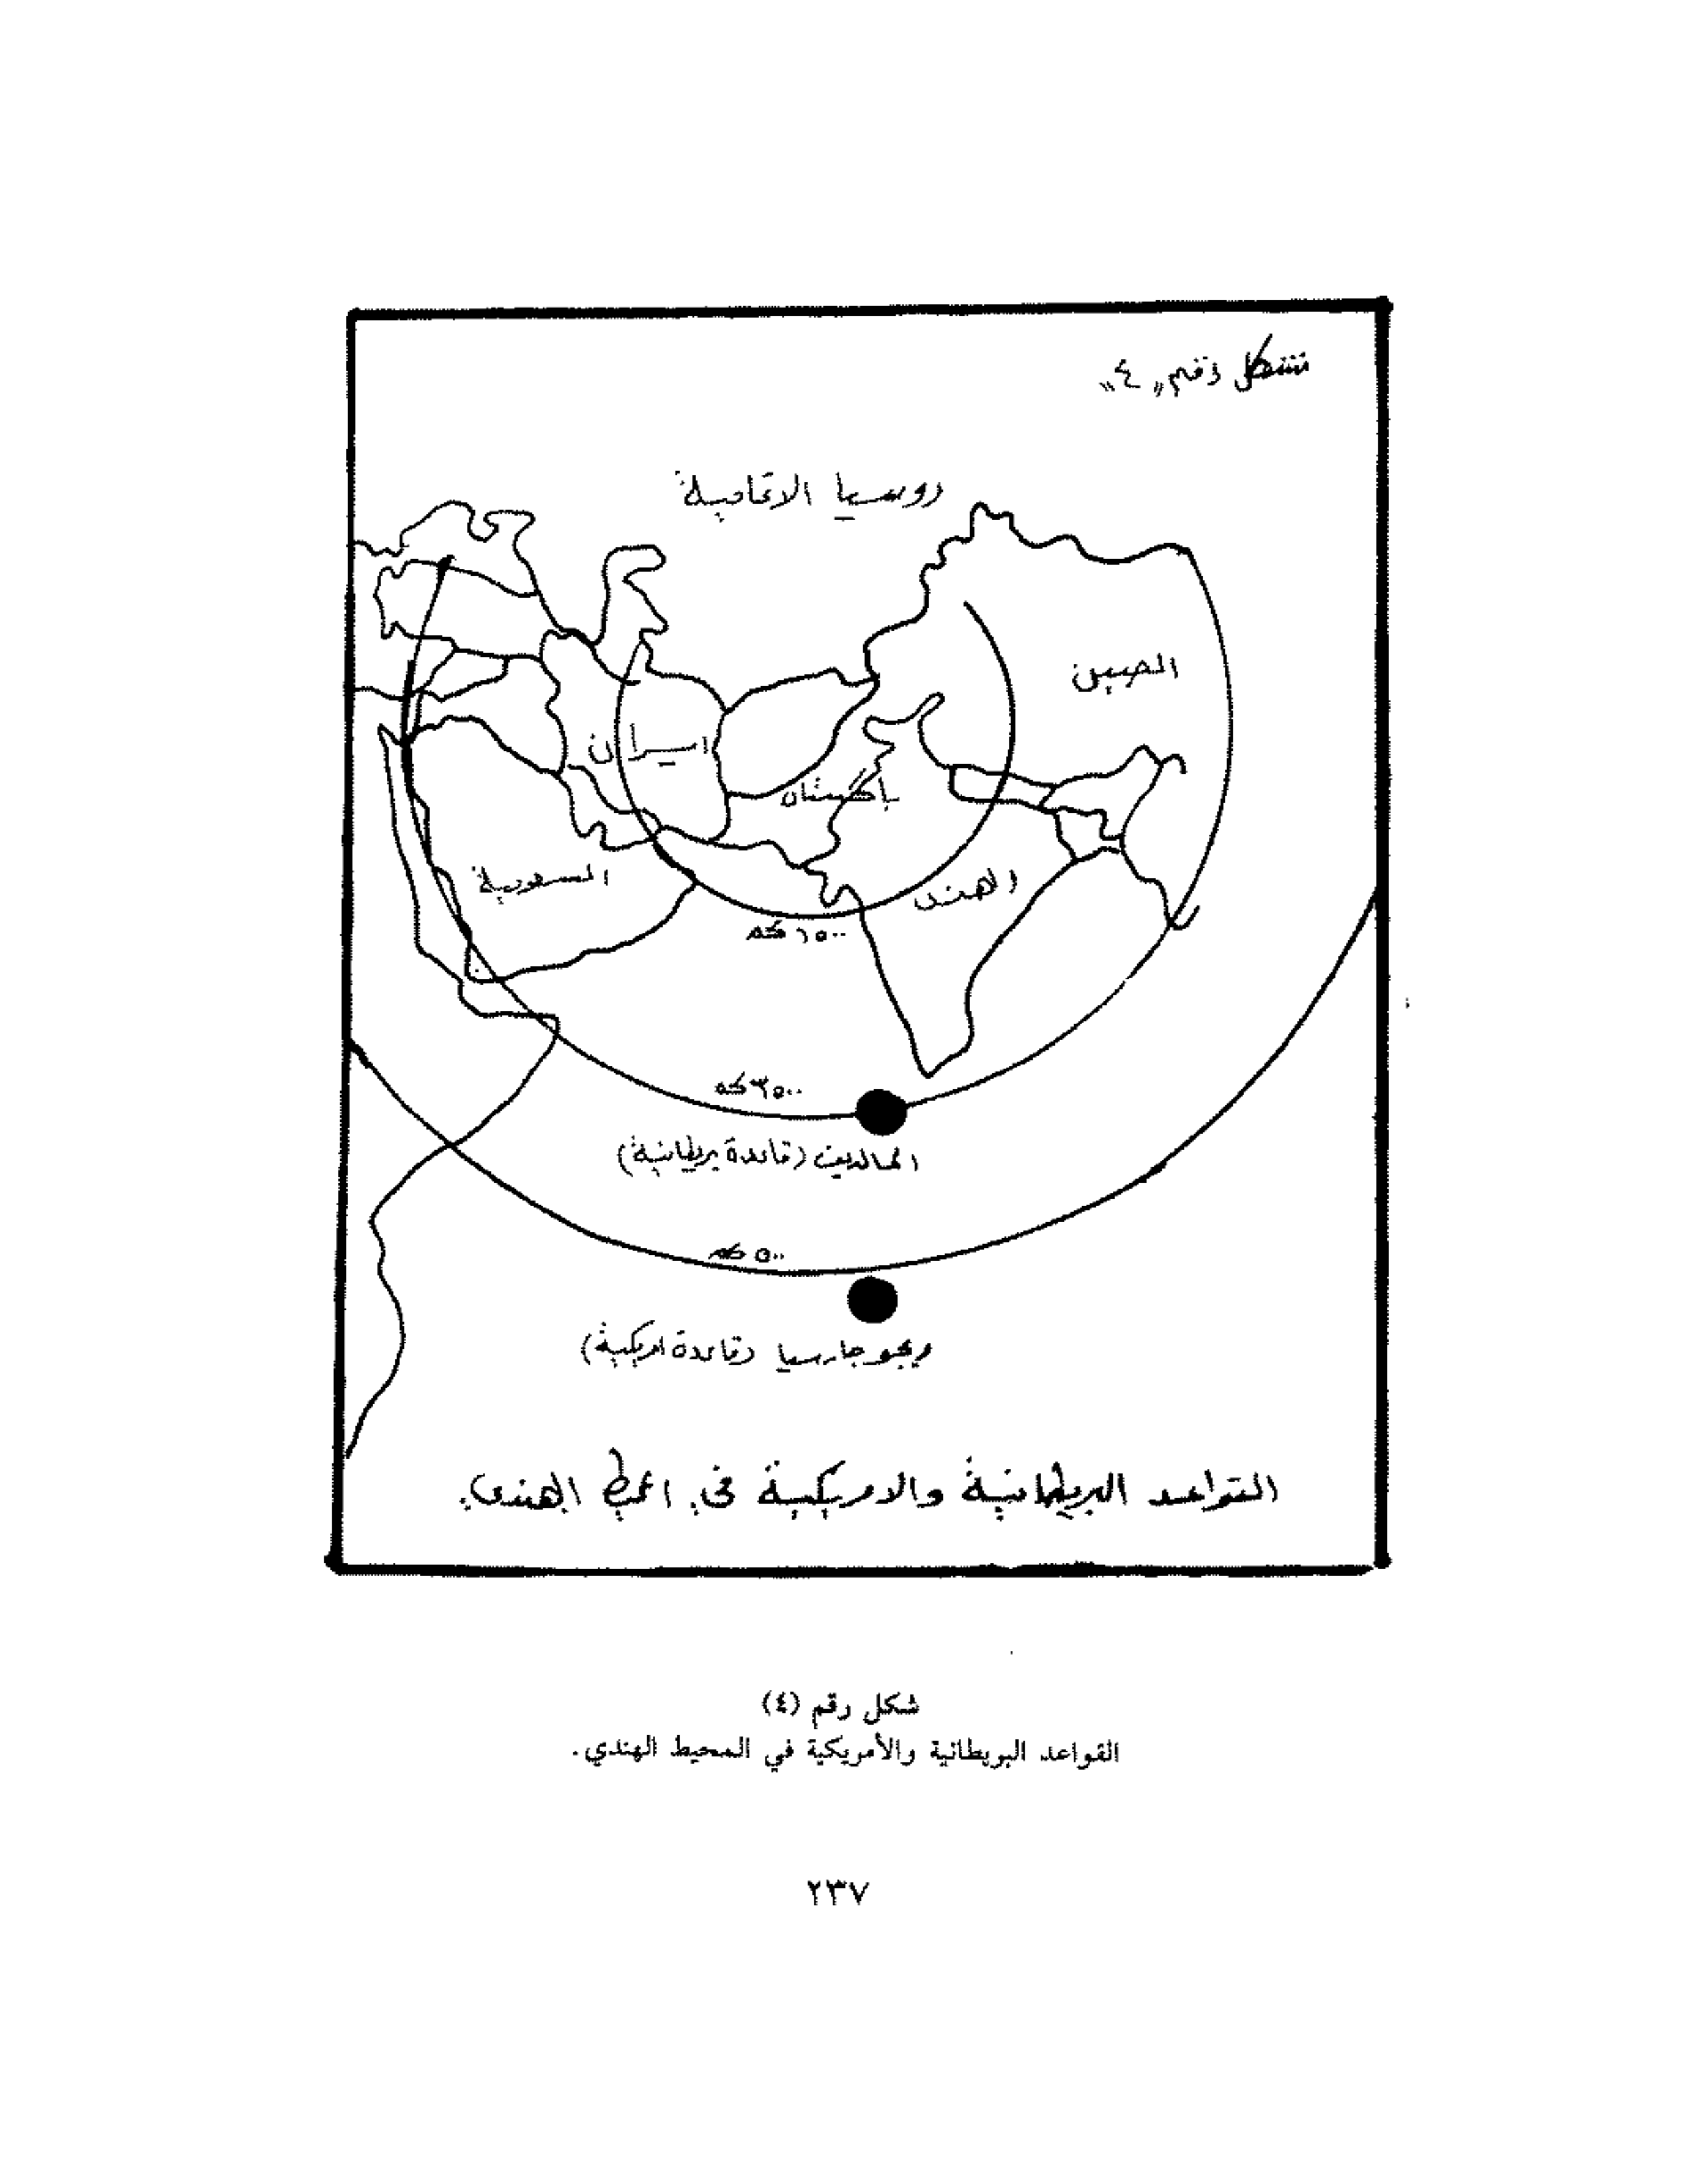 شكل رقم "٤"
روسيا الاتحادية
الصين
ايران
باكستان
السعودية
الهند
١٥٠٠ كم
٣٥٠٠ كم
المالديف (قاعدة بريطانية)
٥٠٠ كم
ديجو جارسيا (قاعدة امريكية)
القواعد البريطانية والامريكية في المحيط الهندي.
شكل رقم (٤)
القواعد البريطانية والأمريكية في المحيط الهندي.
٢٣٧